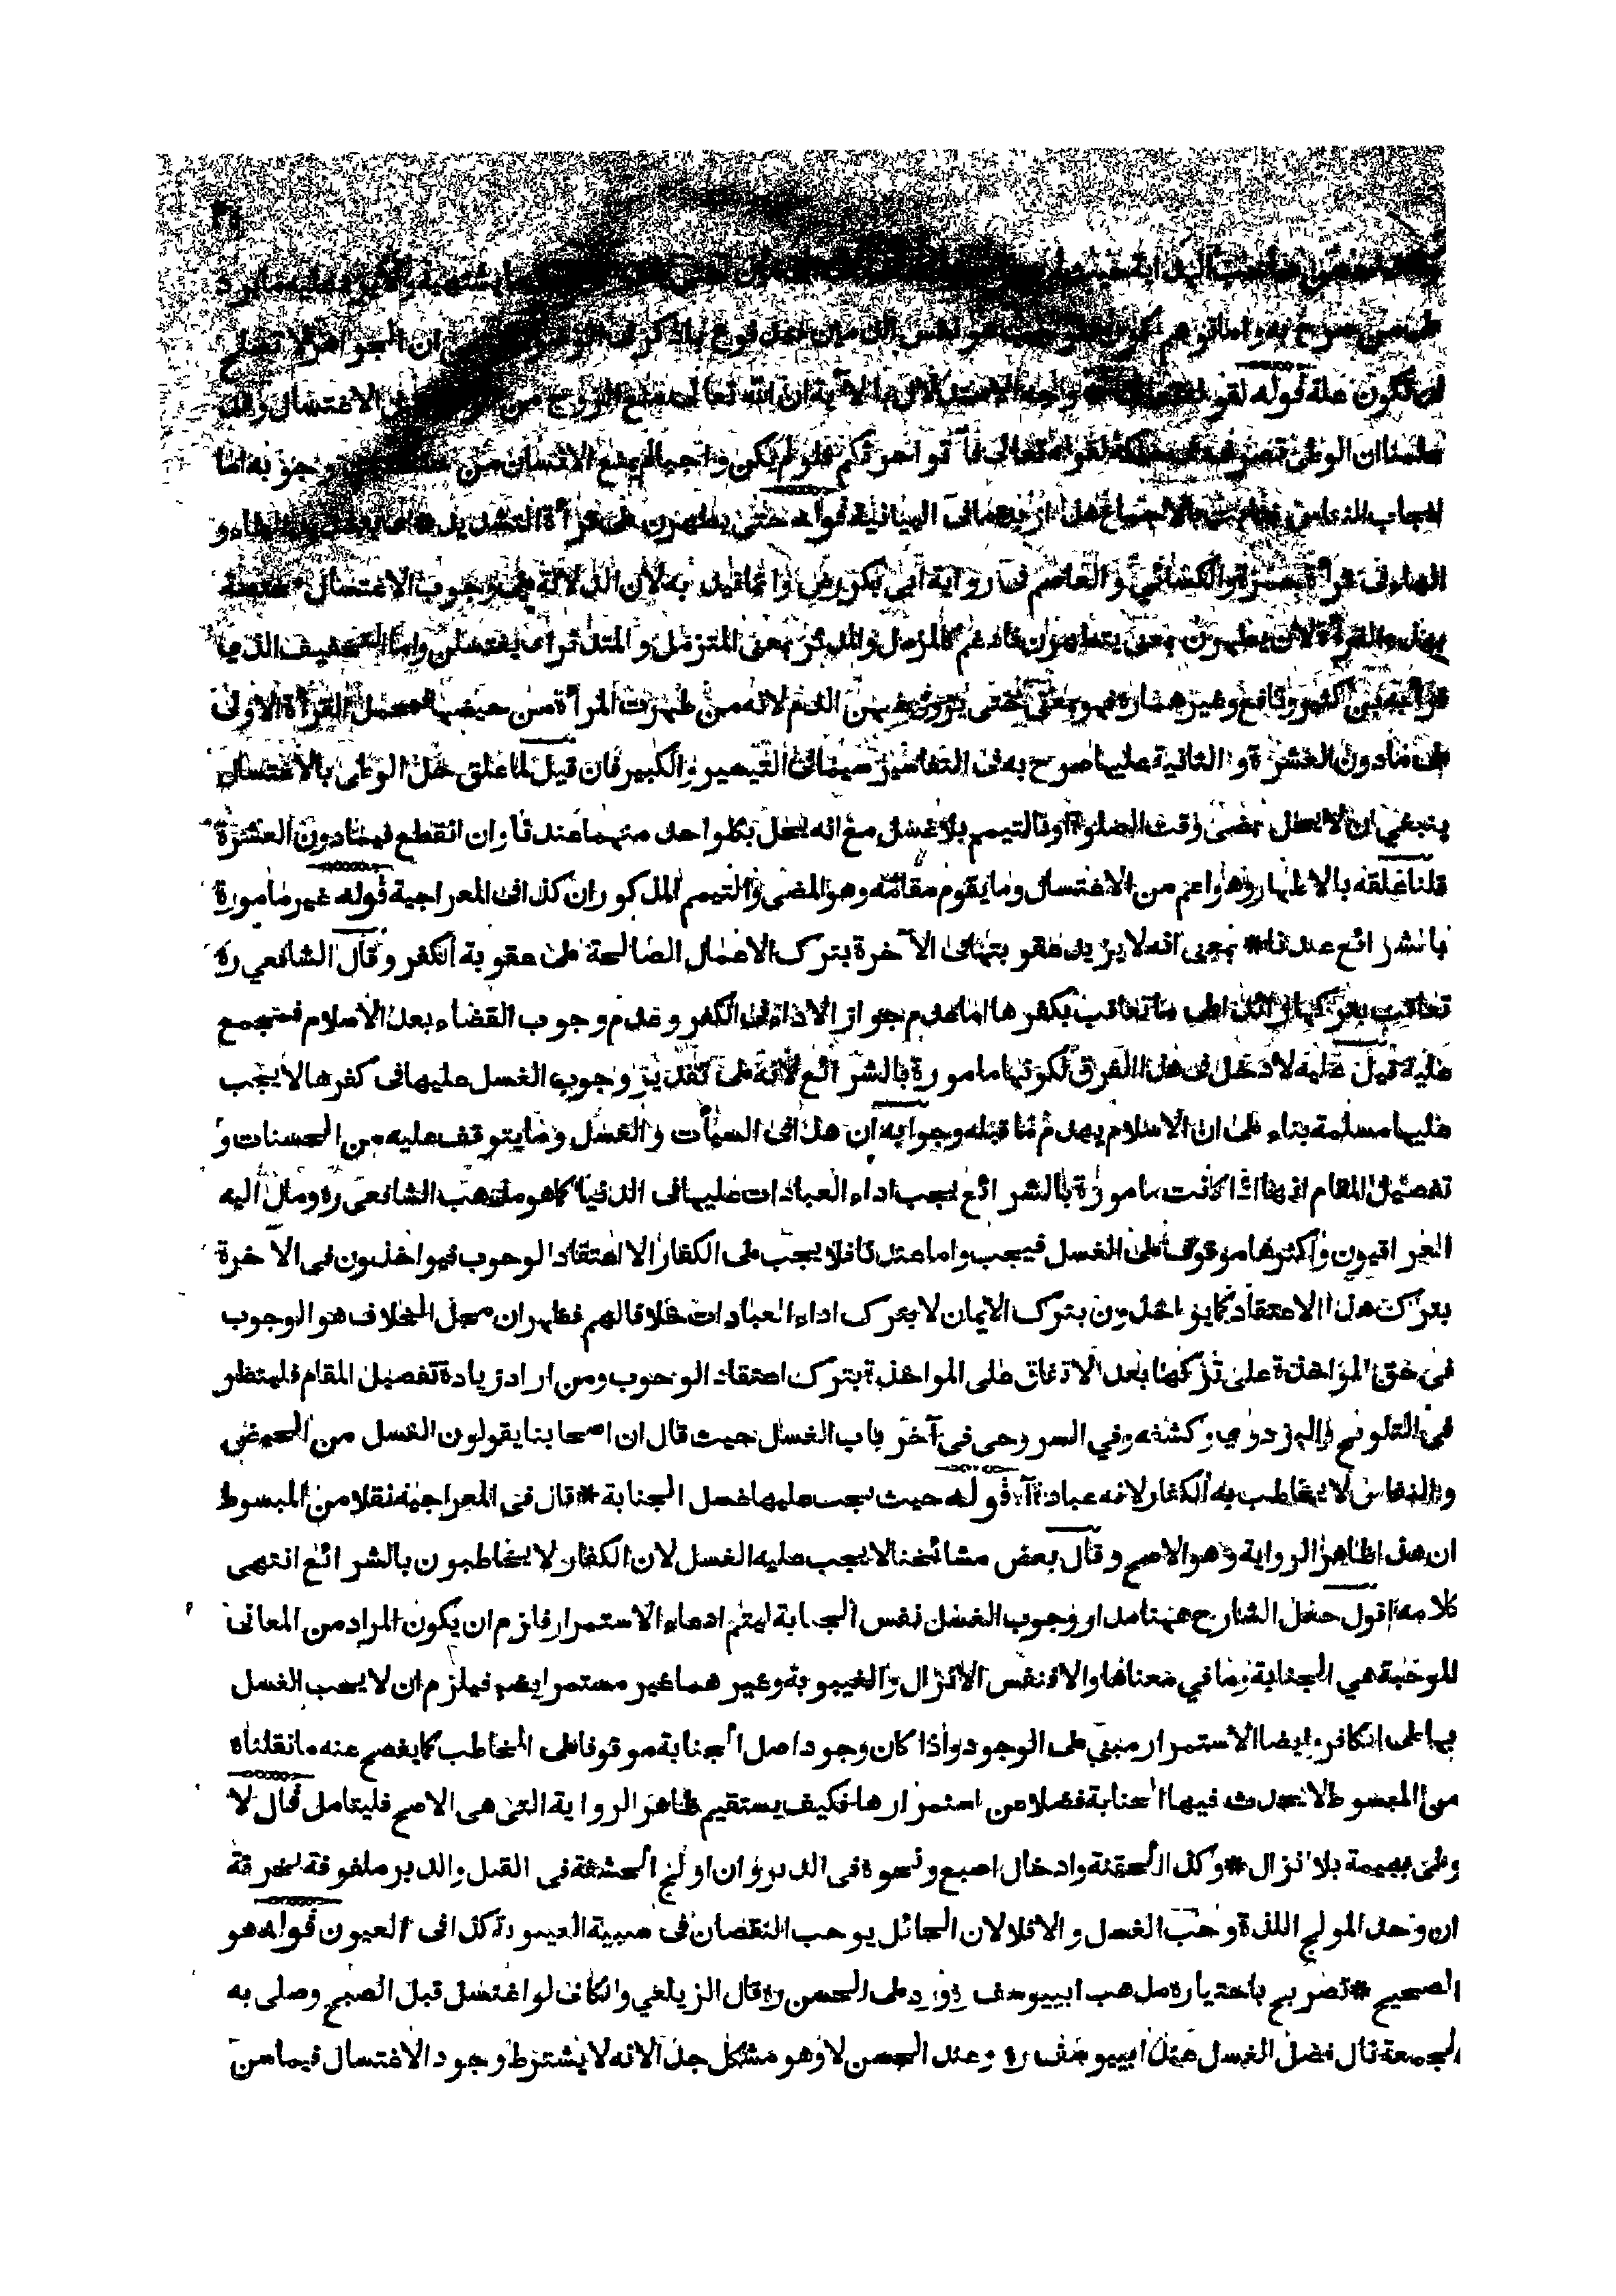 صاحب الهداية
ان الجواهر لا تصلح
ان تكون علة قوله لقوله تعالى وجه الاستدلال بالآية ان الله تعالى منع الزوج من الاغتسال وقد
علمنا ان الوطئ تصرف لقوله تعالى فأتوا حرثكم فلو لم يكن واجبا لم يمنع الانسان من وجوبه اما
ايجاب النفاس بالاجماع هذا زبدة ما فى البيانية قوله حتى يطهرن على قرأة التشديد و
الهاء فى قرأة حمزة والكسائي والعاصم فى رواية ابى بكر رض وانما قيد به لان الدلالة على وجوب الاغتسال
بهذه القرأة لان يطهرن بمعنى يتطهرن فادغم كالمزمل والمدثر بمعنى المتزمل والمتدثر اى يغتسلن واما التخفيف الذي
قرأ به ابن كثير ونافع وغيرهما ره فهو بمعنى حتى يزول عنهن الدم لانه من طهرت المرأة من حيضها فتحمل القرأة الاولى
على ما دون العشرة والثانية عليها صرح به فى التفاسير سيما فى التيسير والكبير فان قيل لما علق حل الوطى بالاغتسال
ينبغي ان لا يحل بمضى وقت الصلوة او بالتيمم بلا غسل مع انه يحل بكل واحد منهما عندنا وان انقطع فيما دون العشرة
قلنا علقه بالاطهار وهو اعم من الاغتسال وما يقوم مقامه وهو المضى والتيمم المذكوران كذا فى المعراجية قوله غير مامورة
بالشرائع عندنا # بمعنى انه لا يزيد عقوبتها فى الآخرة بترك الاعمال الصالحة على عقوبة الكفر وقال الشافعي ره
تعاقب بتركها زائدا على ما تعاقب بكفرها اما عدم جواز الاداء فى الكفر وعدم وجوب القضاء بعد الاسلام فمجمع
عليه قيل عليه لا دخل فى هذا الفرق لكونها مامورة بالشرائع لانه على تقدير وجوب الغسل عليها فى كفرها لا يجب
عليها مسلمة بناء على ان الاسلام يهدم ما قبله وجوابه ان هذا فى السيأت والغسل وما يتوقف عليه من الحسنات و
تفصيل المقام انها اذا كانت مامورة بالشرائع يجب اداء العبادات عليها فى الدنيا كما هو مذهب الشافعى ره ومال اليه
العراقيون واكثرها موقوف على الغسل فيجب واما عندنا فلا يجب على الكفار الا اعتقاد الوجوب فيواخذون فى الآخرة
بترك هذا الاعتقاد كما يواخذون بترك الايمان لا بترك اداء العبادات خلافا لهم فظهر ان محل الخلاف هو الوجوب
فى حق المؤاخذة على تركها بعد الاتفاق على المواخذة بترك اعتقاد الوجوب ومن اراد زيادة تفصيل المقام فلينظر
فى التلويح والبزدوي وكشفه وفي السروجى فى آخر باب الغسل حيث قال ان اصحابنا يقولون الغسل من الحيض
والنفاس لا يخاطب به الكفار لانه عبادة آه قوله حيث يجب عليها غسل الجنابة # قال فى المعراجية نقلا من المبسوط
ان هذا ظاهر الرواية وهو الاصح وقال بعض مشائخنا لا يجب عليه الغسل لان الكفار لا يخاطبون بالشرائع انتهى
كلامه اقول جعل الشارح ههنا مدار وجوب الغسل نفس الجنابة ليتم ادعاء الاستمرار فلزم ان يكون المراد من المعانى
الموجبة هي الجنابة وما في معناها والا فنفس الانزال والغيبوبة وغيرهما غير مستمر ايضا فيلزم ان لا يجب الغسل
بها على الكافر وايضا الاستمرار مبني على الوجود واذا كان وجود اصل الجنابة موقوفا على المخاطب كما يفصح عنه ما نقلناه
من المبسوط لا يحدث فيها الجنابة فضلا من استمرارها فكيف يستقيم ظاهر الرواية التى هى الاصح فليتامل قال لا
وطئ بهيمة بلا انزال # وكذا الحقنة وادخال اصبع ونحوه فى الدبر وان اولج الحشفة فى القبل والدبر ملفوفة بخرقة
ان وجد المولج اللذة وجب الغسل والا فلا لان الحائل يوجب النقصان فى سببية الغيبوبة كذا فى العيون قوله هو
الصحيح # تصريح باختياره مذهب ابييوسف ورد على الحسن ره قال الزيلعي والكاف لو اغتسل قبل الصبح وصلى به
الجمعة نال فضل الغسل عند ابييوسف ره وعند الحسن لا وهو مشكل جدا لانه لا يشترط وجود الاغتسال فيما سن